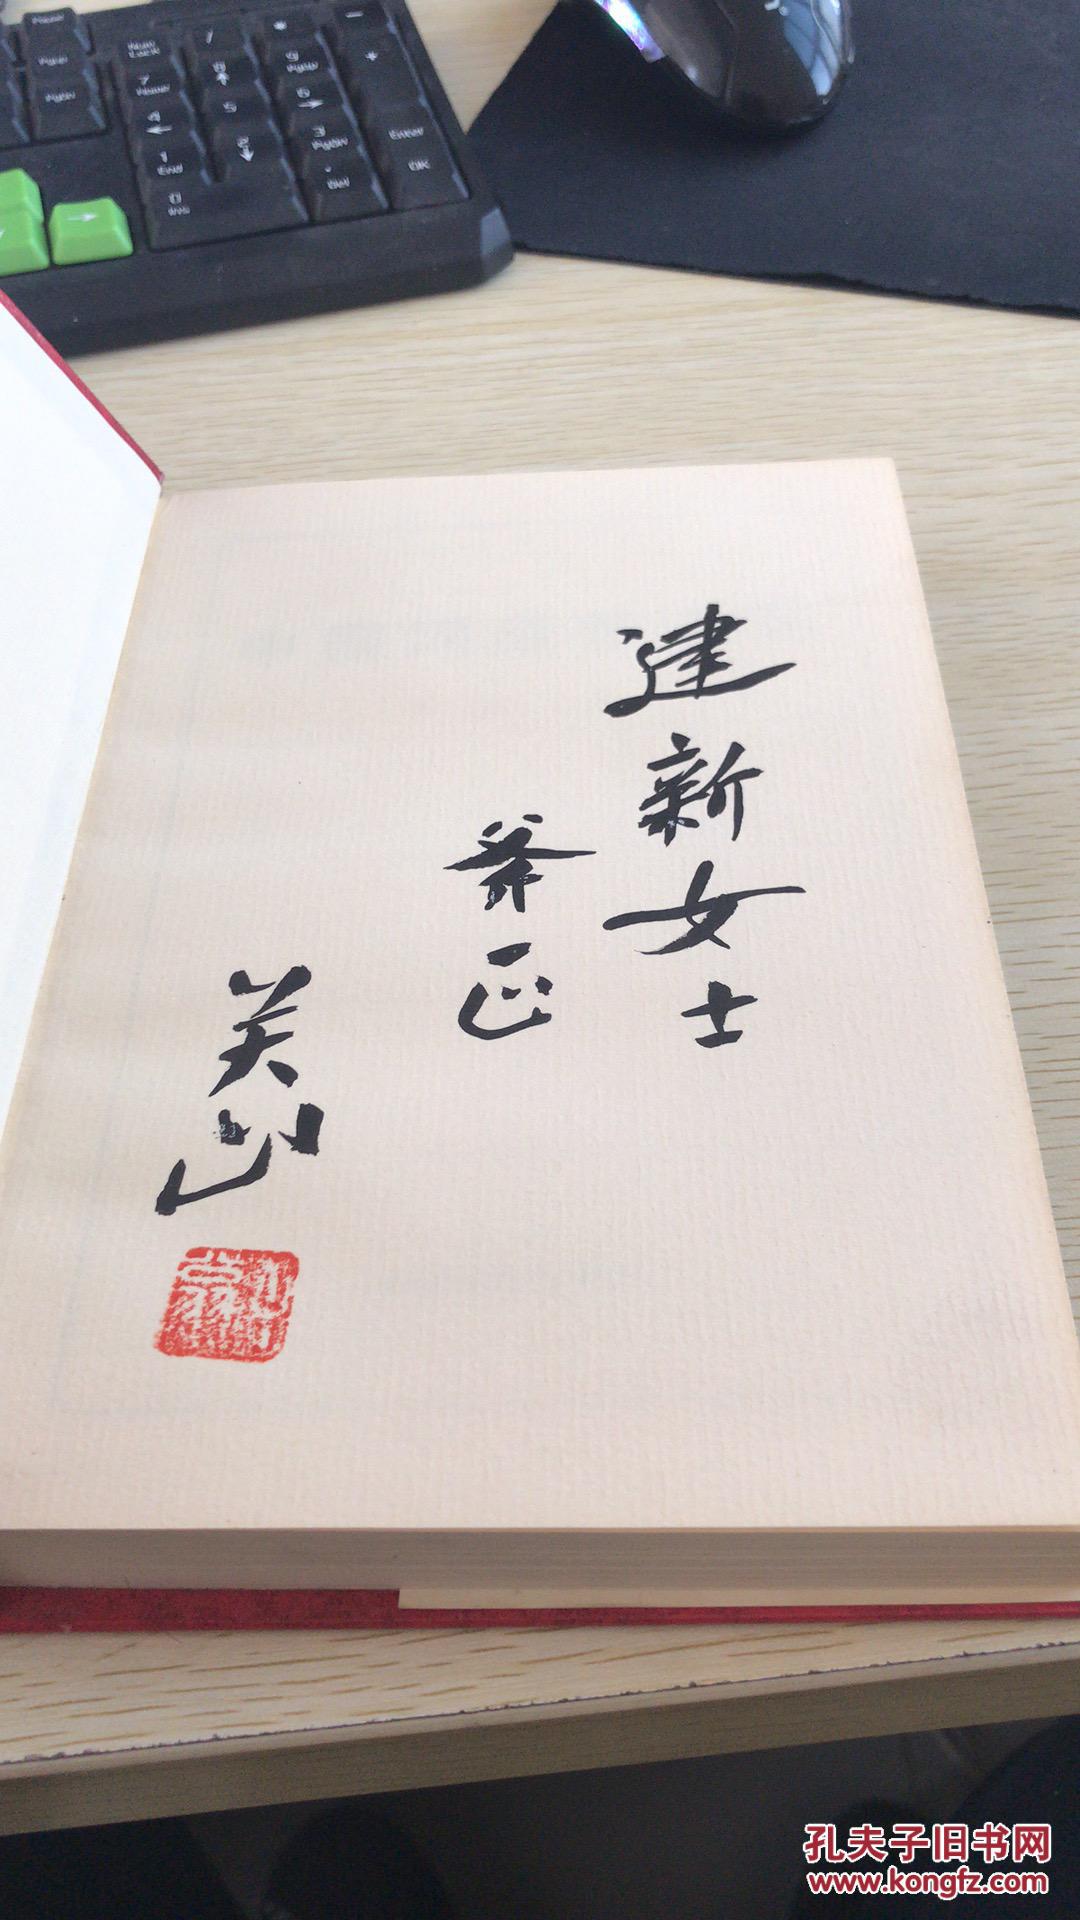 建新女士
斧正
关山
孔夫子旧书网
www.kongfz.com
Num Lock
/
*
-
+
7 Home
8
9 PgUp
4
5
6
1 End
2
3 PgDn
Enter
0 Ins
. Del
OK